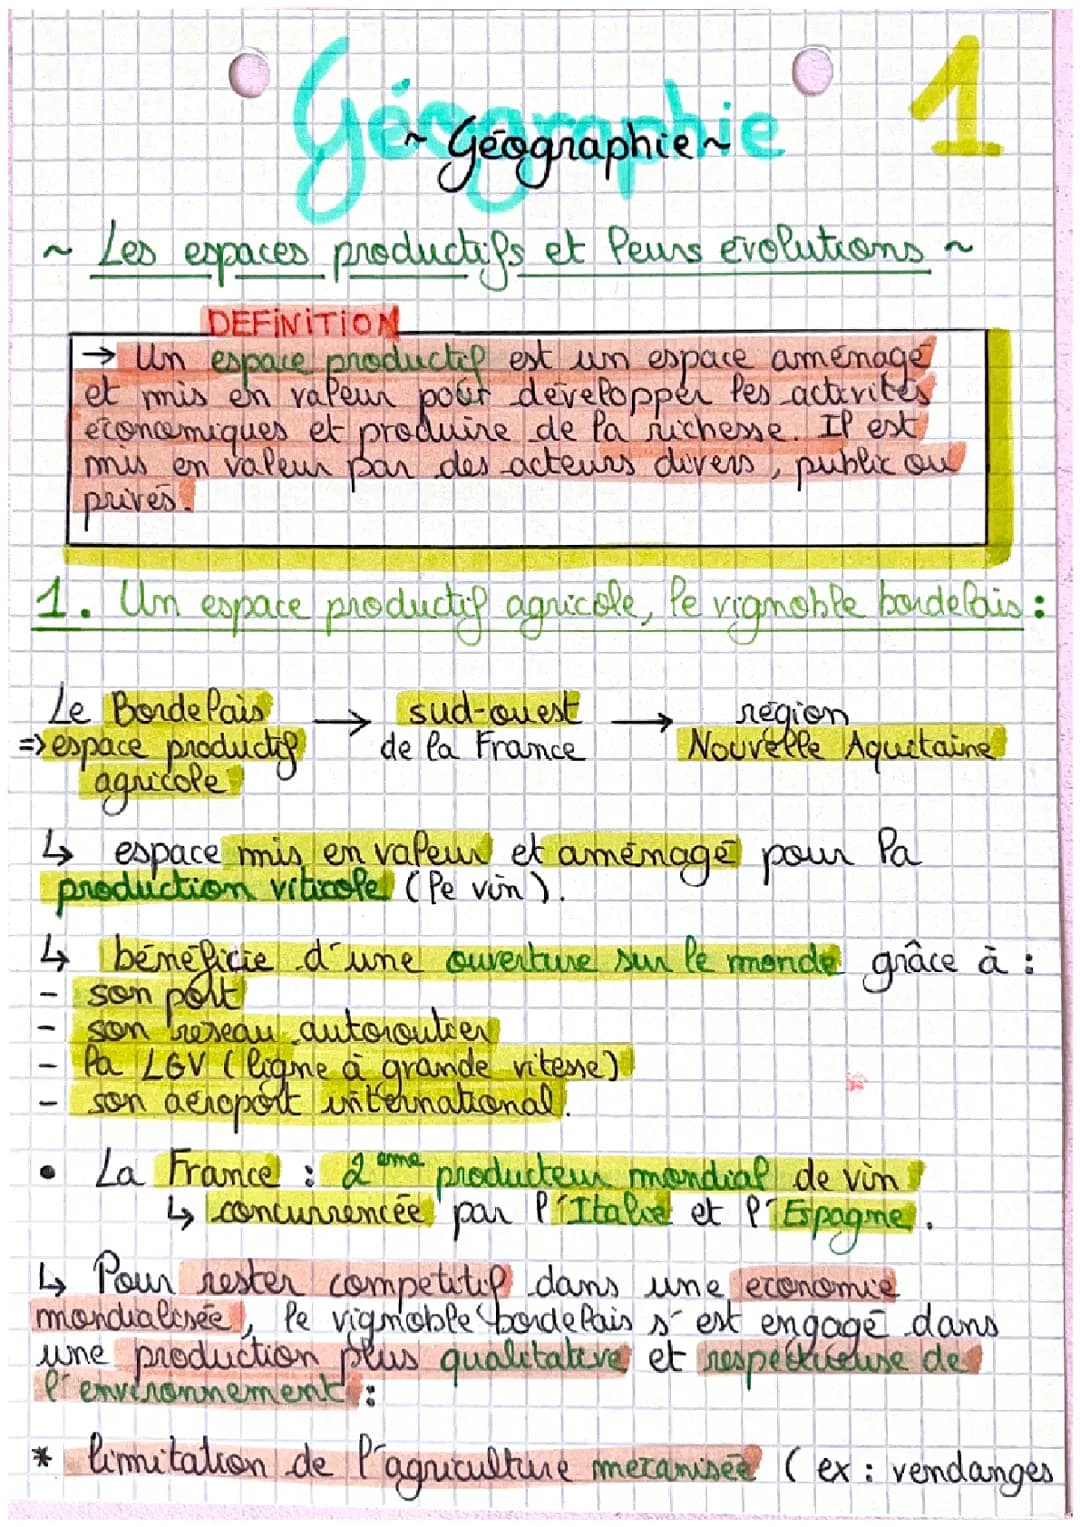 Géographie
~ Géographie ~
1
~ Les espaces productifs et leurs évolutions ~
DEFINITION
→ Un espace productif est un espace aménagé
et mis en valeur pour développer les activités
économiques et produire de la richesse. Il est
mis en valeur par des acteurs divers, public ou
privés.
1. Un espace productif agricole, le vignoble bordelais :
Le Bordelais → sud-ouest → région
=> espace productif de la France Nouvelle Aquitaine
agricole
↳ espace mis en valeur et aménagé pour la
production viticole (le vin).
↳ bénéficie d'une ouverture sur le monde grâce à :
- son port
- son réseau autoroutier
- la LGV (ligne à grande vitesse)
- son aéroport international.
• La France : 2ème producteur mondial de vin
↳ concurrencée par l'Italie et l'Espagne.
↳ Pour rester compétitif dans une économie
mondialisée, le vignoble bordelais s'est engagé dans
une production plus qualitative et respectueuse de
l'environnement :
* limitation de l'agriculture mécanisée (ex : vendanges